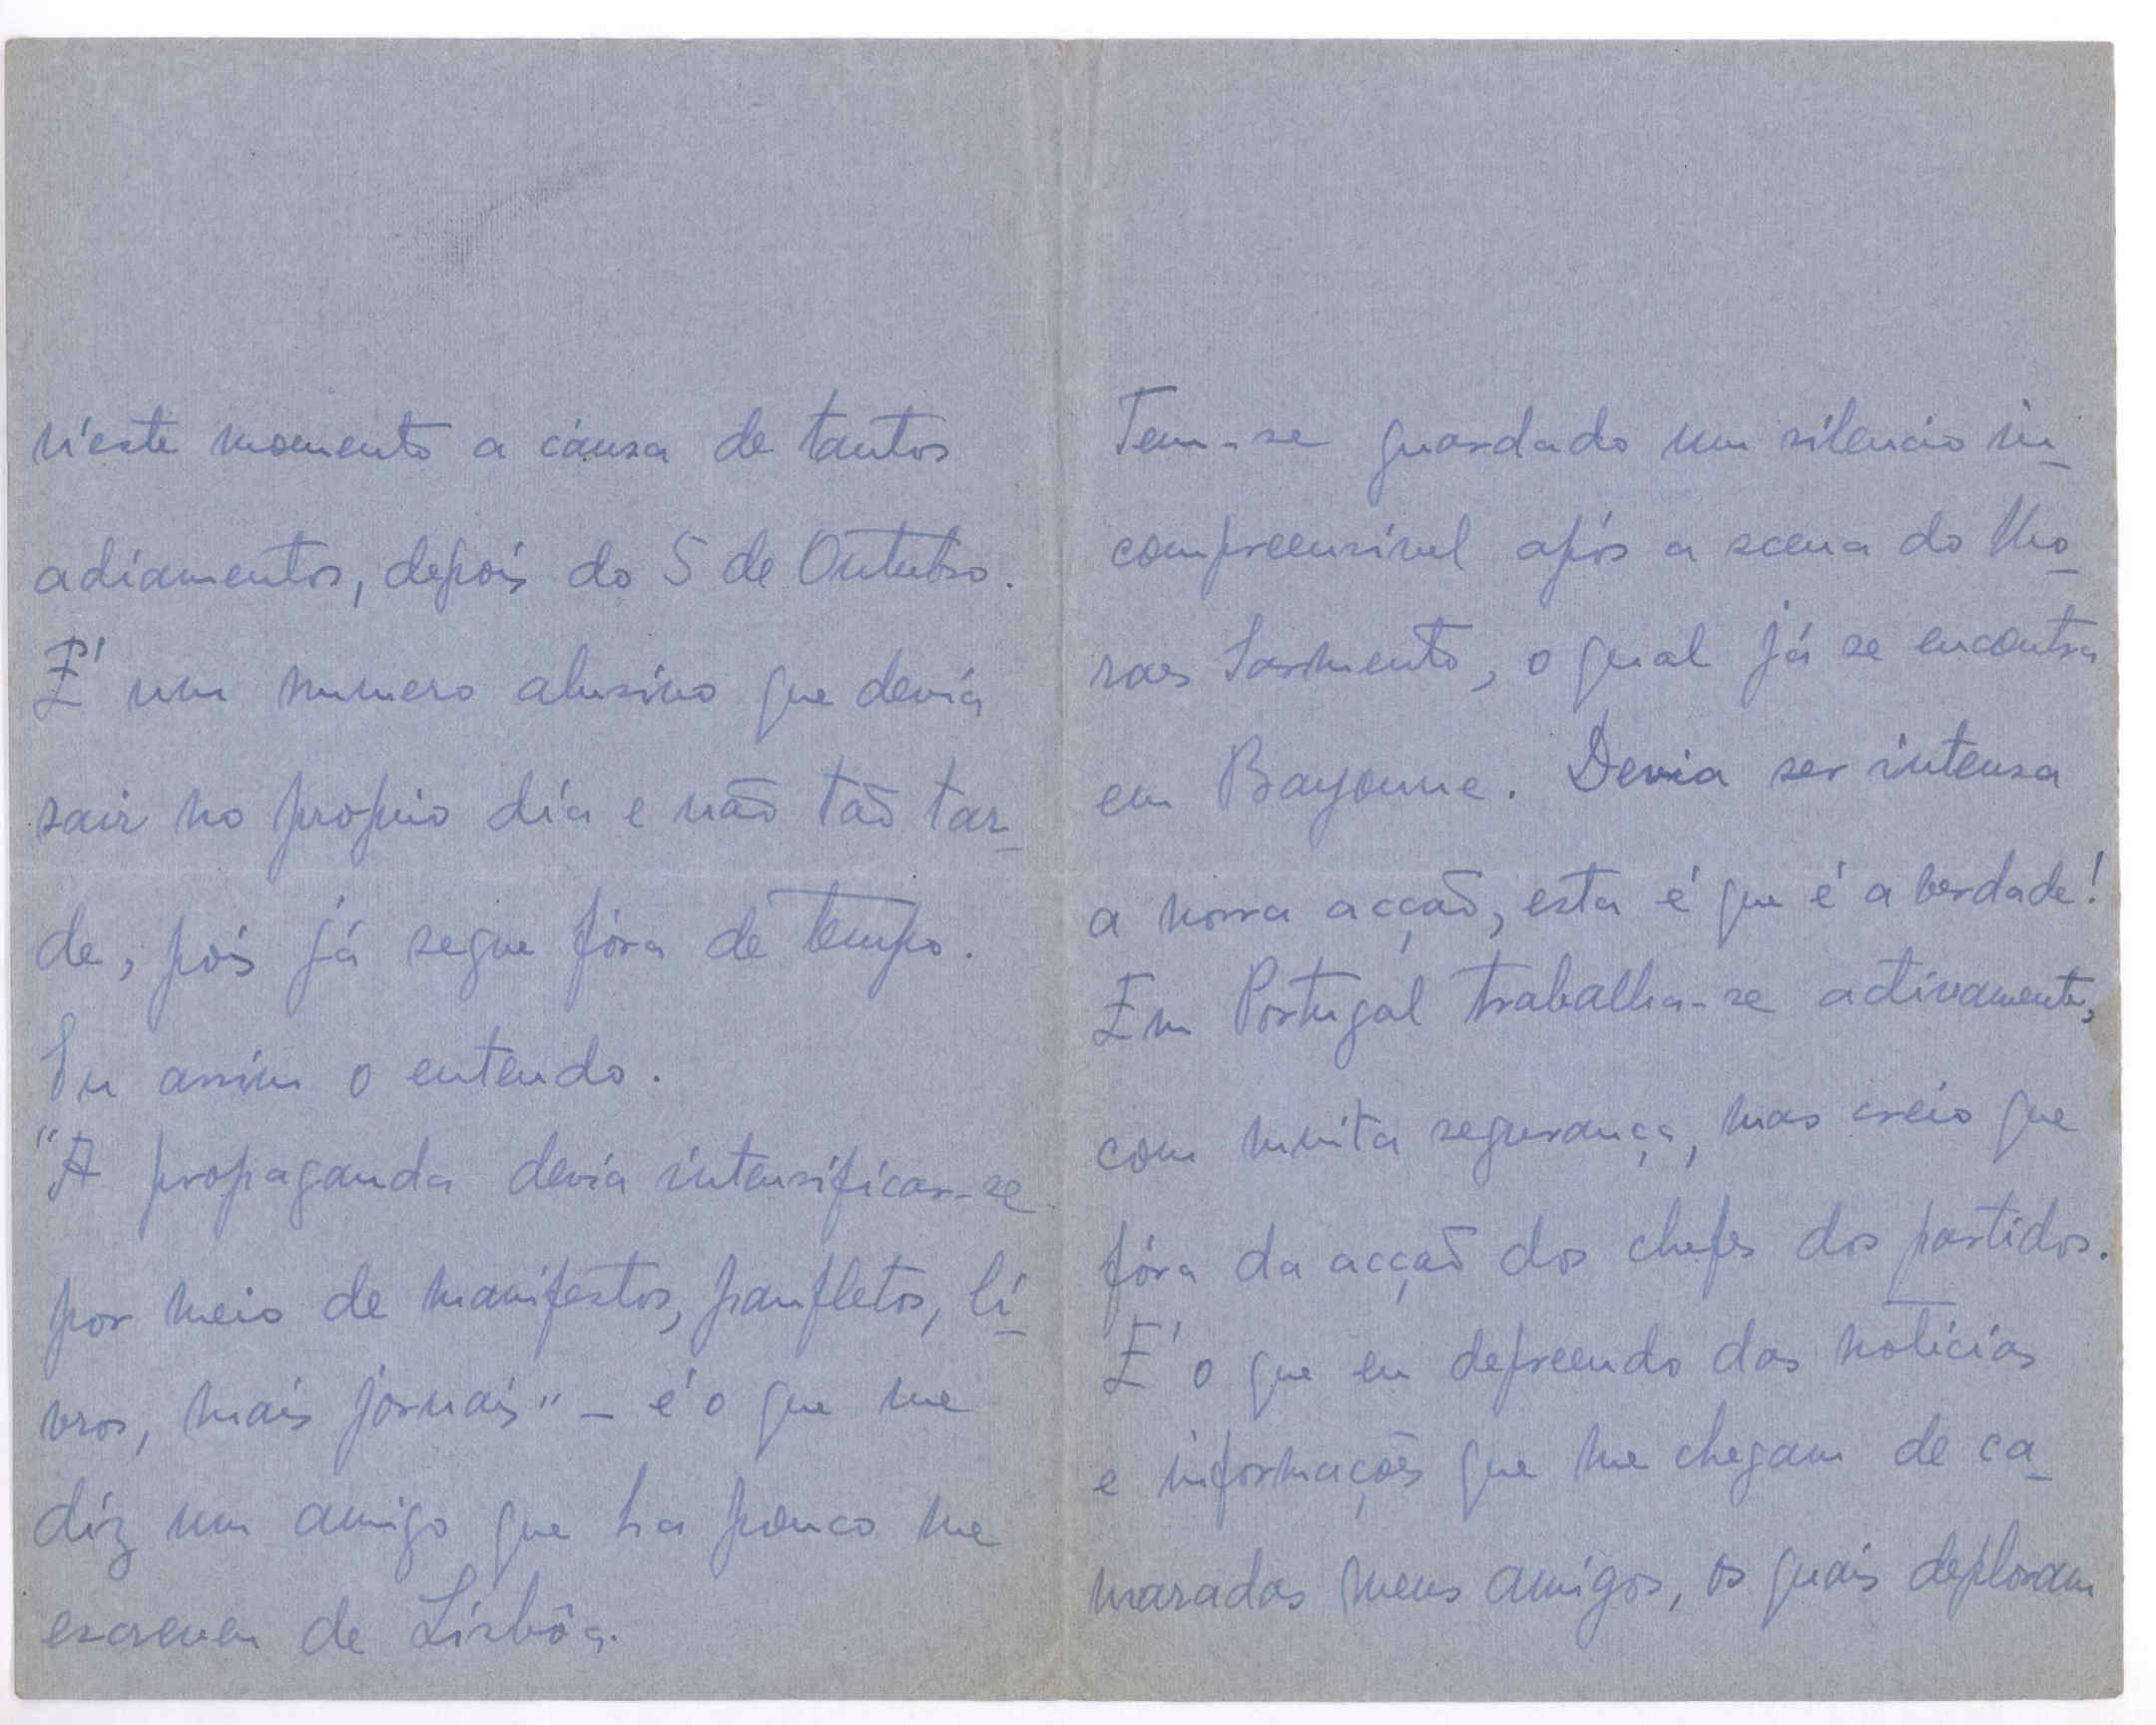 n'este momento a causa de tantos
adiamentos, depois do 5 de Outubro.
É um numero alusivo que devia
sair no proprio dia e não tão tar-
de, pois já segue fóra de tempo.
Eu assim o entendo.
"A propaganda devia intensificar-se
por meio de manifestos, panfletos, li-
vros, mais jornais" - é o que me
diz um amigo que ha pouco me
escreveu de Lisbôa.
Tem-se guardado um silencio in-
compreensivel após a scena do Mo-
raes Sarmento, o qual já se encontra
em Bayonne. Devia ser intensa
a nossa acção, esta é que é a verdade!
Em Portugal trabalha-se activamente,
com muita segurança, mas creio que
fóra da acção dos chefes dos partidos.
É o que eu depreendo das noticias
e informações que me chegam de ca-
maradas meus amigos, os quais deploram